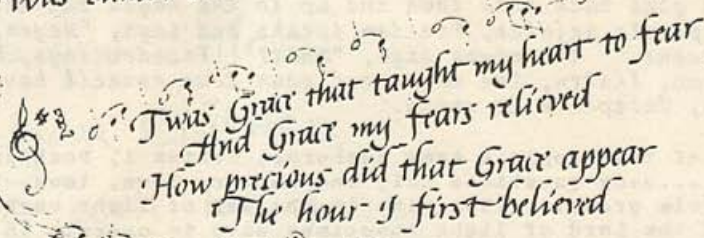 'Twas Grace that taught my heart to fear
And Grace my fears relieved
How precious did that Grace appear
The hour I first believed